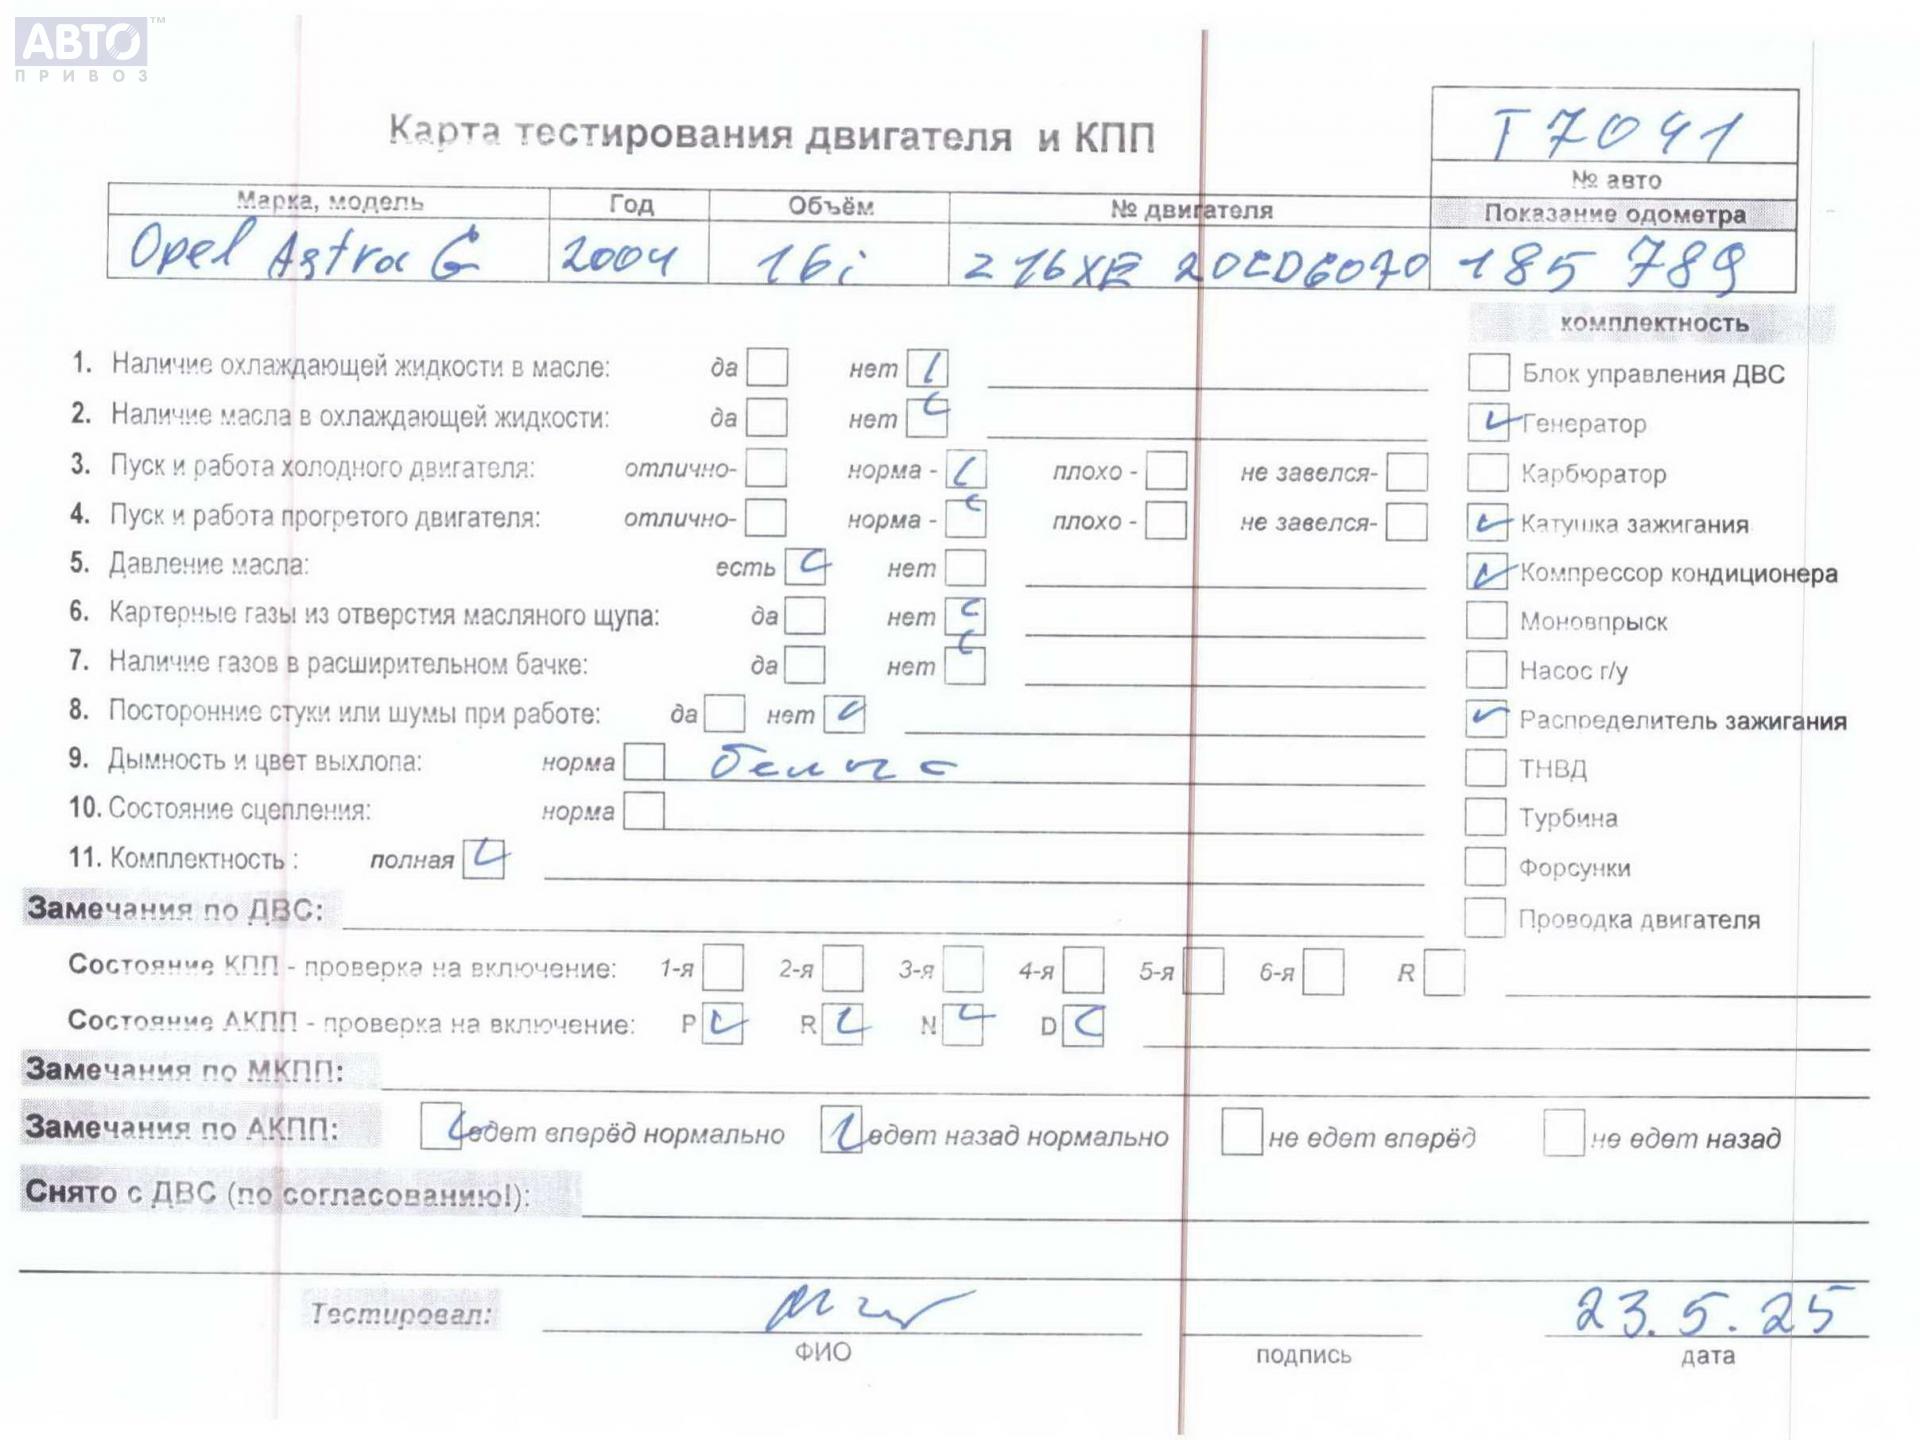 АВТО™
ПРИВОЗ
Карта тестирования двигателя и КПП
T7041
№ авто
Марка, модель Год Объём № двигателя Показание одометра
Opel Astra G 2004 16i Z16XE 20CD6070 185 789
комплектность
1. Наличие охлаждающей жидкости в масле: да нет
Блок управления ДВС
2. Наличие масла в охлаждающей жидкости: да нет
Генератор
3. Пуск и работа холодного двигателя: отлично- норма - плохо - не завелся-
Карбюратор
4. Пуск и работа прогретого двигателя: отлично- норма - плохо - не завелся-
Катушка зажигания
5. Давление масла: есть нет
Компрессор кондиционера
6. Картерные газы из отверстия масляного щупа: да нет
Моновпрыск
7. Наличие газов в расширительном бачке: да нет
Насос г/у
8. Посторонние стуки или шумы при работе: да нет
Распределитель зажигания
9. Дымность и цвет выхлопа: норма
ТНВД
10. Состояние сцепления: норма
Турбина
11. Комплектность : полная
Форсунки
Замечания по ДВС:
Проводка двигателя
Состояние КПП - проверка на включение: 1-я 2-я 3-я 4-я 5-я 6-я R
Состояние АКПП - проверка на включение: P R N D
Замечания по МКПП:
Замечания по АКПП: едет вперёд нормально едет назад нормально не едет вперёд не едет назад
Снято с ДВС (по согласованию!):
Тестировал: 23.5.25
ФИО подпись дата